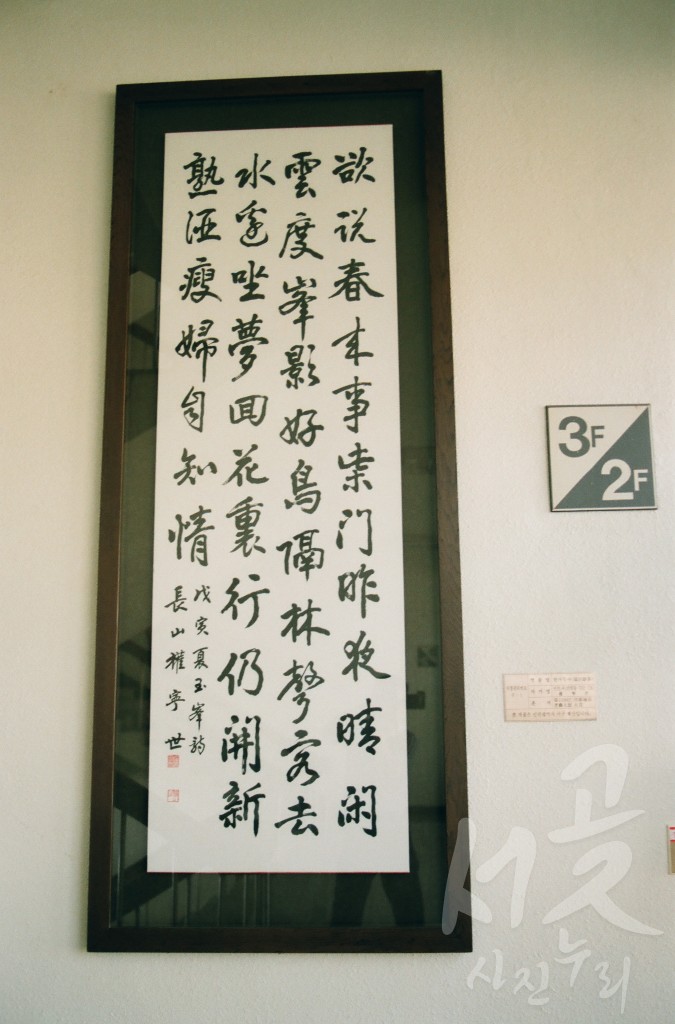 欲说春来事柴门昨夜晴闲
雲度峯影好鳥隔林聲客去
水邊坐夢回花裏行仍聞新
熟酒瘦婦自知情
戊寅夏玉峯詩
長山權寧世
3F
2F
서곶
사진누리